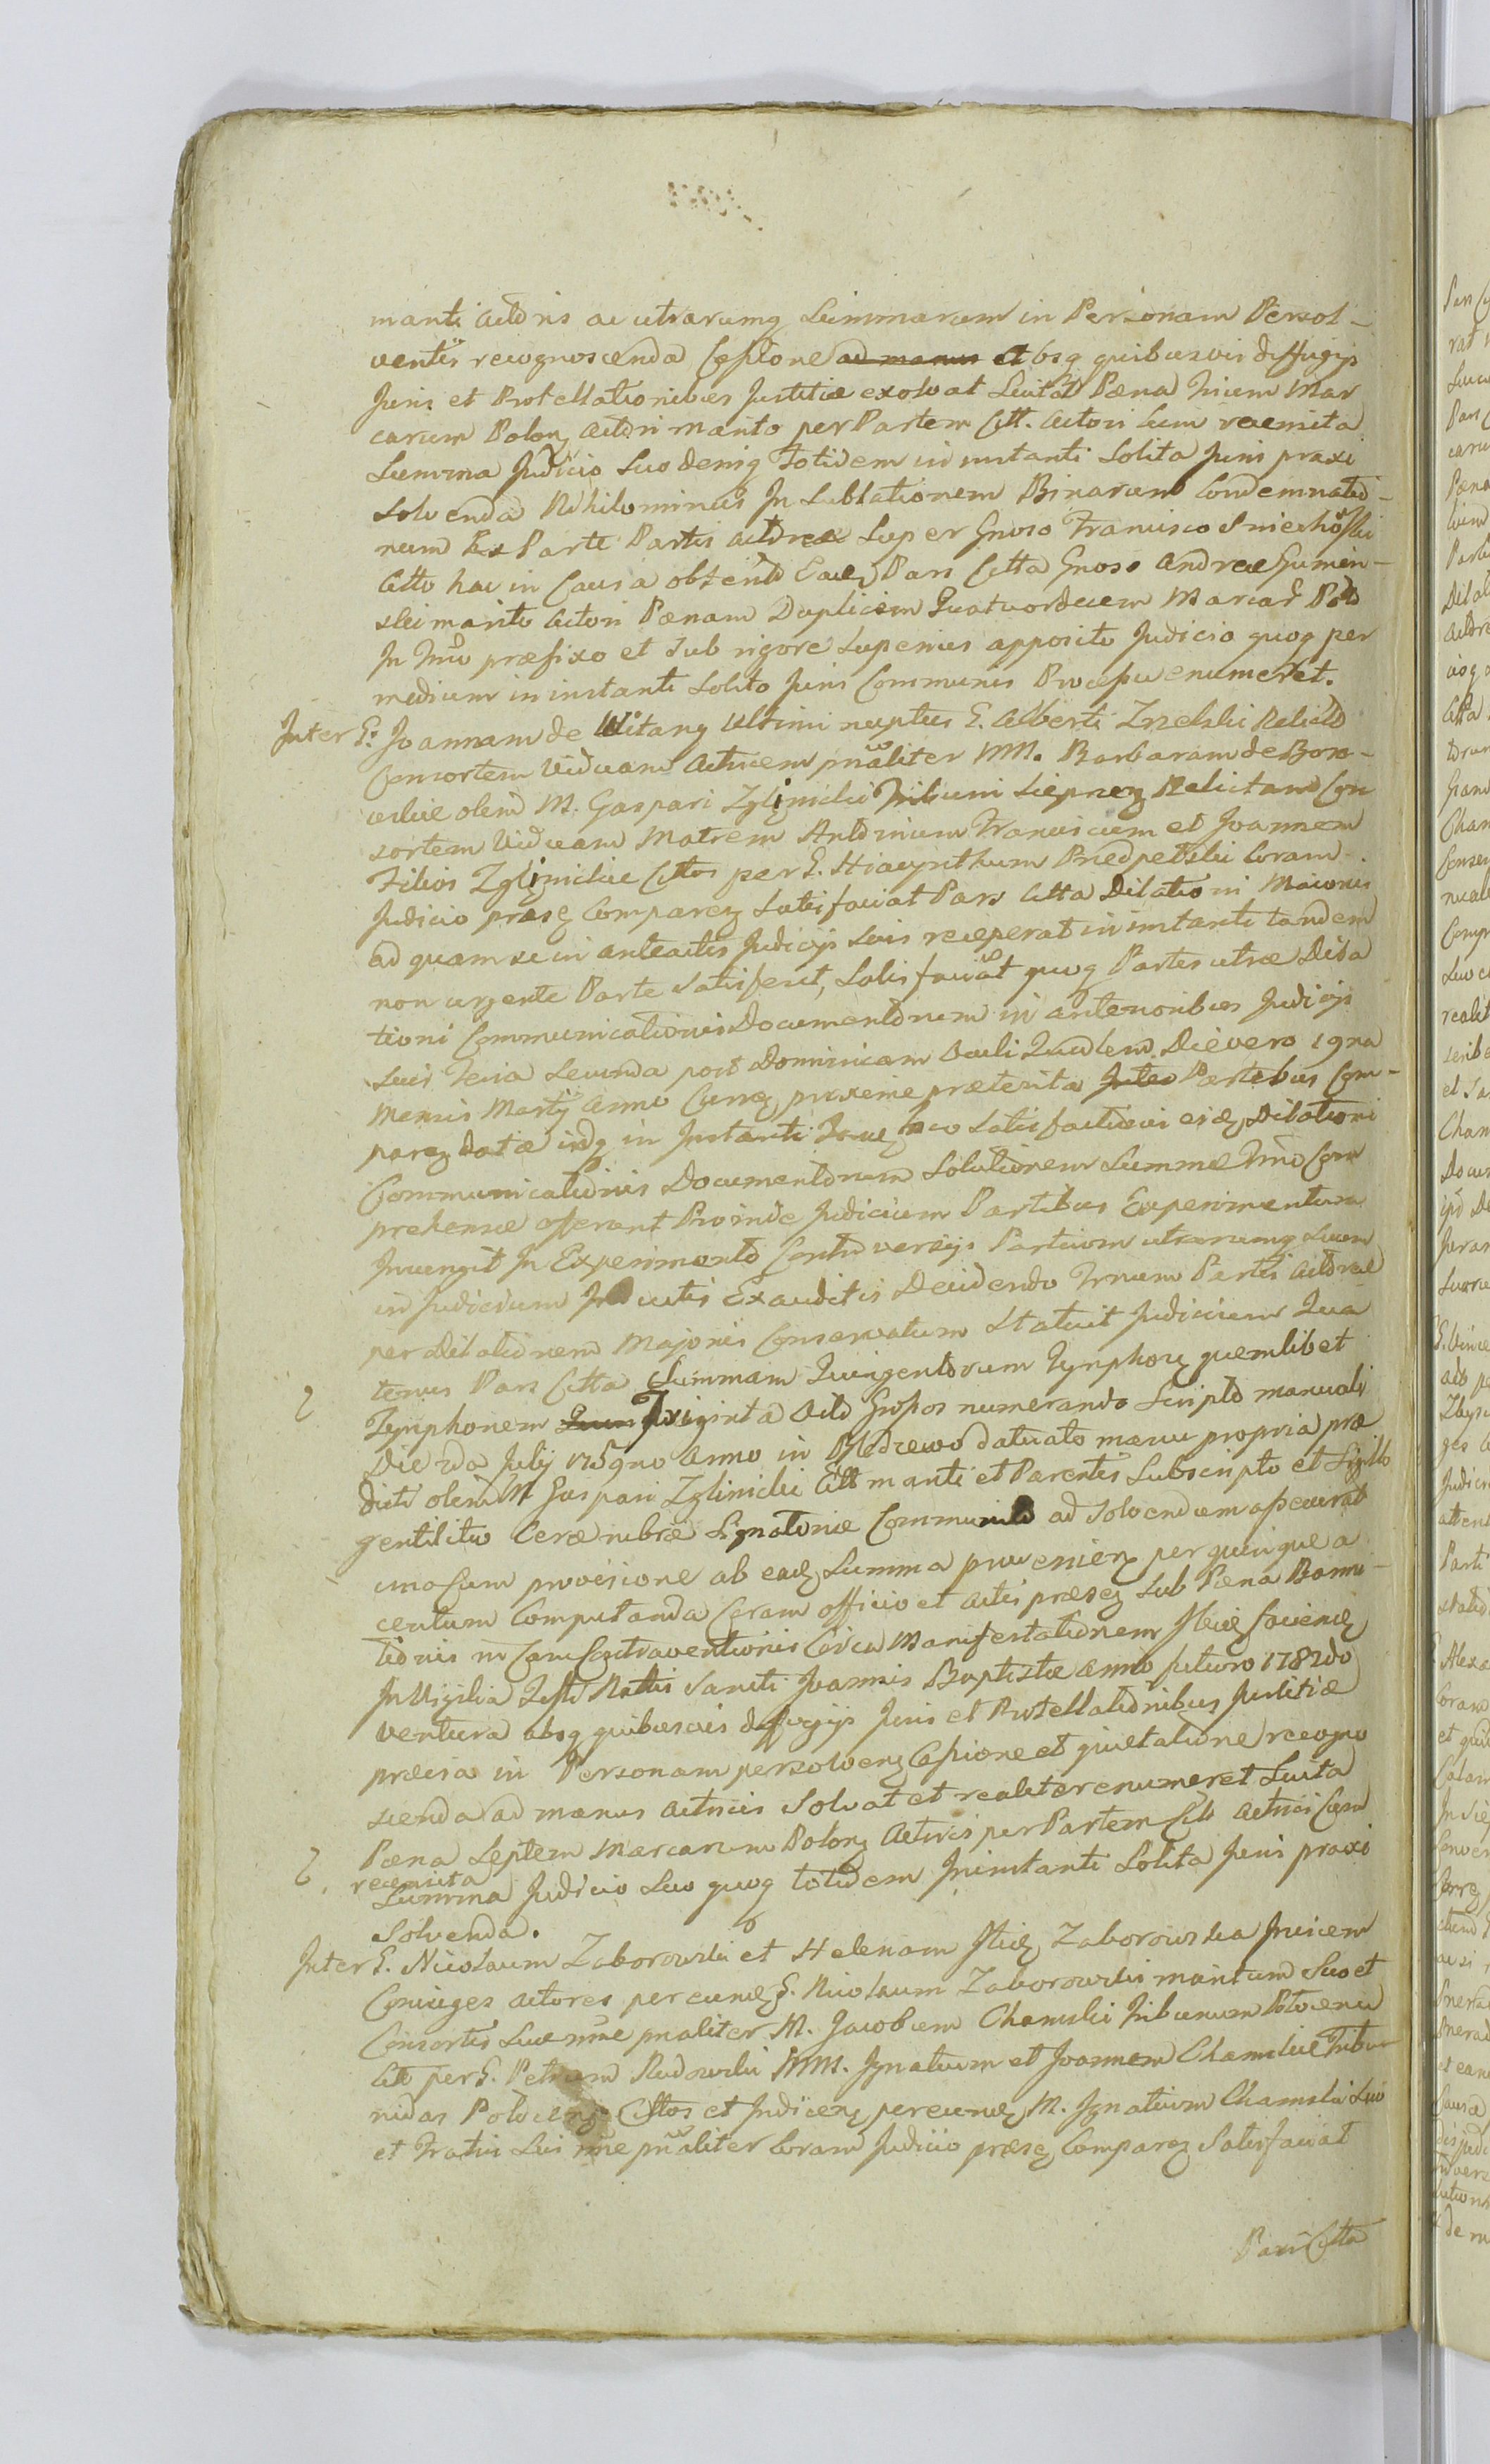 manti actoris ac utrarumq Summarum in Personam Persol-
ventis recognoscenda Capione ad manus absq quibusvis diffugijs
Juris et Protellationibus Justitiæ exolvat Luitat Pæna trium Mar
carum Polonz actori marito per Partem Citt. actori cum recensita
Summa Judicio Suo deniq Totidem in instanti Solita Juris praxi
Solvenda Nihilominus In Sublationem Binarum Condemnatio-
num Ex Parte Partis actoreæ Super Gnoso Francisco
Citto hac in Causa obtento Eadem Pars Citta Gnoso Andreæ Gumin-
ski marito Actori Pænam Duplicem Quatuordecem Marcar Pol
In Tmno præfixo et Sub rigore Superius apposito Judicio quoq per
medium in instanti Solito Juris Communis Processu enumeret.
Inter G. Joannam de Witany Ultimi nuptus G. Alberti Relicto
Consortem Viduam Actricem pnaliter MM. Barbaram de Boro-
wskie olim M. Gaspari Zglinicki Tribuni Relictam Con
sortem Viduam Matrem Antonium Franciscum et Joannem
Filios Zglinickie Cittos per G. Hiacynthum Coram
Judicio præsz Comparez Satisfaciat Pars Citta Dilationi Maioris
ad quam se in anteactis Judicijs Suis receperat in instanti tandem
non urgente Parte Satisfecit, Satisfaciat quoq Partes utræ Dila
tioni Communicationis Documentorum in anterioribus Judicijs
Suis Feria Secunda post Dominicam Oculi Die vero 19na
Mensis Martij Anno Currz proxime præterita Inter Partibus Com-
parez datæ idq in Instanti hoc Satisfactioni ejdz Dilationi
Communicationis Documentorum Solutionem Summæ Tmno Com
prehensæ offerant Proinde Judicium Partibus Experimentum
Invenit In Experimento Controversijs Partium utrarumq Suum
in Judicium Inductis Exauditis Decidendo Trnum Partis Actoreæ
per Dilationem Majoris Conservatum Statuit Judicium Qua
tenus Pars Citta Summam Quingentorum Tynphorz quemlibet
Tynphonem Triginta Octo Grossos numerando Scripto manuali
Die 2da Julij 1759no Anno in datuato manu propria præ
dicti olim M Gaspari Zglinicki Citt mariti et Parentis Subscripto et Sigillo
gentilitio Ceræ rubræ Signatoriæ Communito ad Solvendum assecurat
una cum provisione ab eadz Summa provenienz per quinque a
centum Computanda Coram officio et actis præsez Sub Pæna Banni-
tionis in Casu Contraventionis Circa Manifestationem faciendz
In Vigilia Festi Nattis Sancti Joannis Baptistæ Anno futuro 1782do
ventura absq quibusvis diffugijs Juris et Protellationibus Justitiæ
præcia in Personam persolvenz Capione et quietatione recogno
scenda ad manus actricis Solvat et realiter enumeret Luita
Pæna Septem Marcarum Polonz Actrici per Partem Citt Actrici Cum
recensita
Summa Judicio Suo quoq totidem Ininstanti Solita Juris praxi
Solvenda.
Inter G. Nicolaum Zaborowski et Helenam Zaborowska Invicem
Coniuges actores per eundz G. Nicolaum Zaborowski maritum Suo et
Consortis Suæ nne pnaliter M. Jacobum Chamski Tribunum
Citt per G. Petrum Rudowski MM. Ignatium et Joannem Chamskie Tribu
nidas Cittos et Judicenz per eundz M. Ignatium Chamski Suo
et Fratris Sui nne pnaliter Coram Judicio præsz Comparez Satisfaciat
Pars Citta